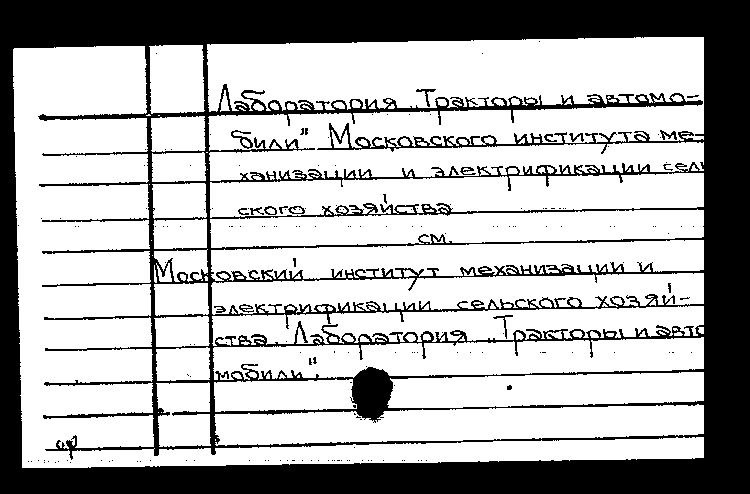 Лаборатория „Тракторы и автомо-
били" Московского института ме-
ханизации и электрификации сель
ского хозяйства
см.
Московский институт механизации и
электрификации сельского хозяй-
ства. Лаборатория „Тракторы и авто
мобили".